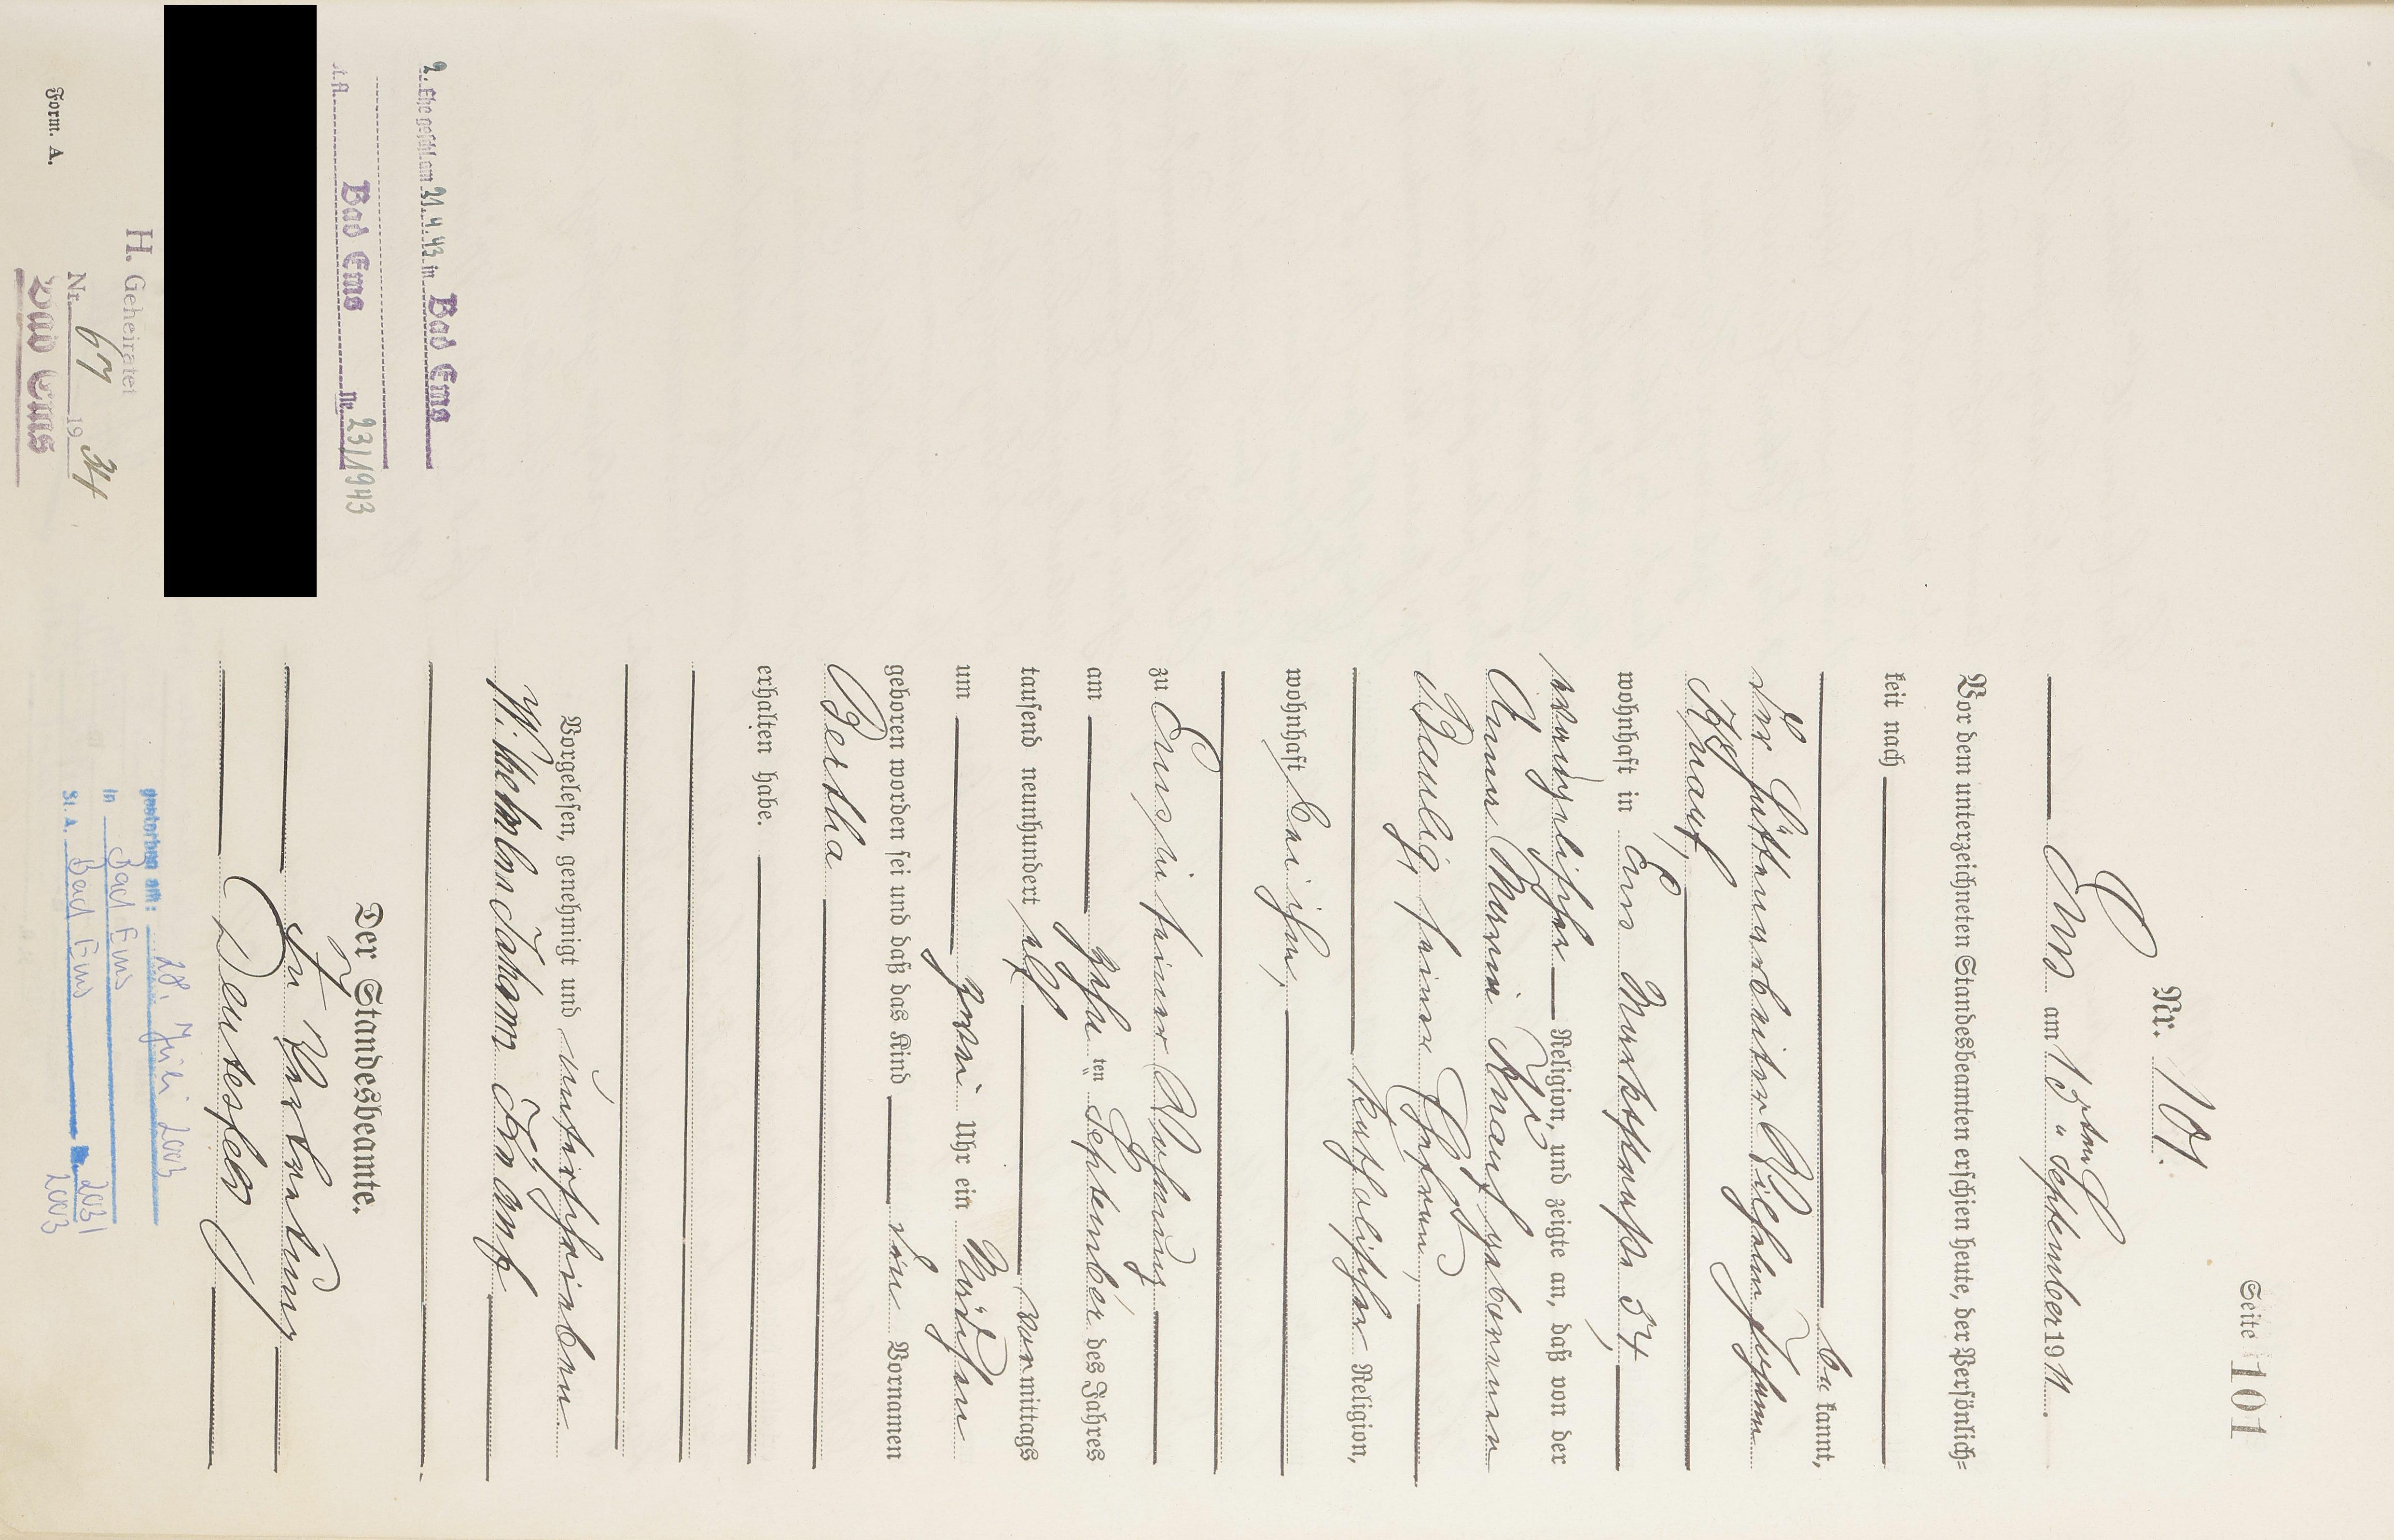 Seite 101
Nr. 101.
Ems am 13ten September 1911.
Vor dem unterzeichneten Standesbeamten erschien heute, der Persönlich=
keit nach
be kannt,
der Hüttenarbeiter Wilhelm Johann
Knauf,
wohnhaft in Ems Marktstraße 54,
evangelischer Religion, und zeigte an, daß von der
Anna Maria Knauf geborenen
Paulig, seiner Ehefrau,
katholischer Religion,
wohnhaft bei ihm,
zu Ems in seiner Wohnung
am zehn ten September des Jahres
tausend neunhundert elf vor mittags
um zwei Uhr ein Mädchen
geboren worden sei und daß das Kind den Vornamen
Bertha
erhalten habe.
Vorgelesen, genehmigt und unterschrieben
Wilhelm Johann Knauf
Der Standesbeamte.
In Vertretung
2. Ehe geschl. am 21.4.43 in Bad Ems
St.A. Bad Ems Nr. 23/1943
H. Geheiratet
Nr. 67 1934
Bad Ems
Form. A.
gestorben am: 18. Juli 2003
in Bad Ems
St. A. Bad Ems Nr. 203/
2003